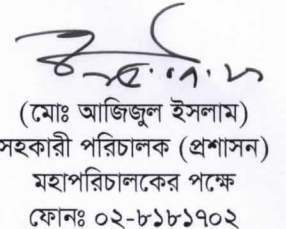 (মোঃ আজিজুল ইসলাম)
সহকারী পরিচালক (প্রশাসন)
মহাপরিচালকের পক্ষে
ফোনঃ ০২-৮১৮১৭০২